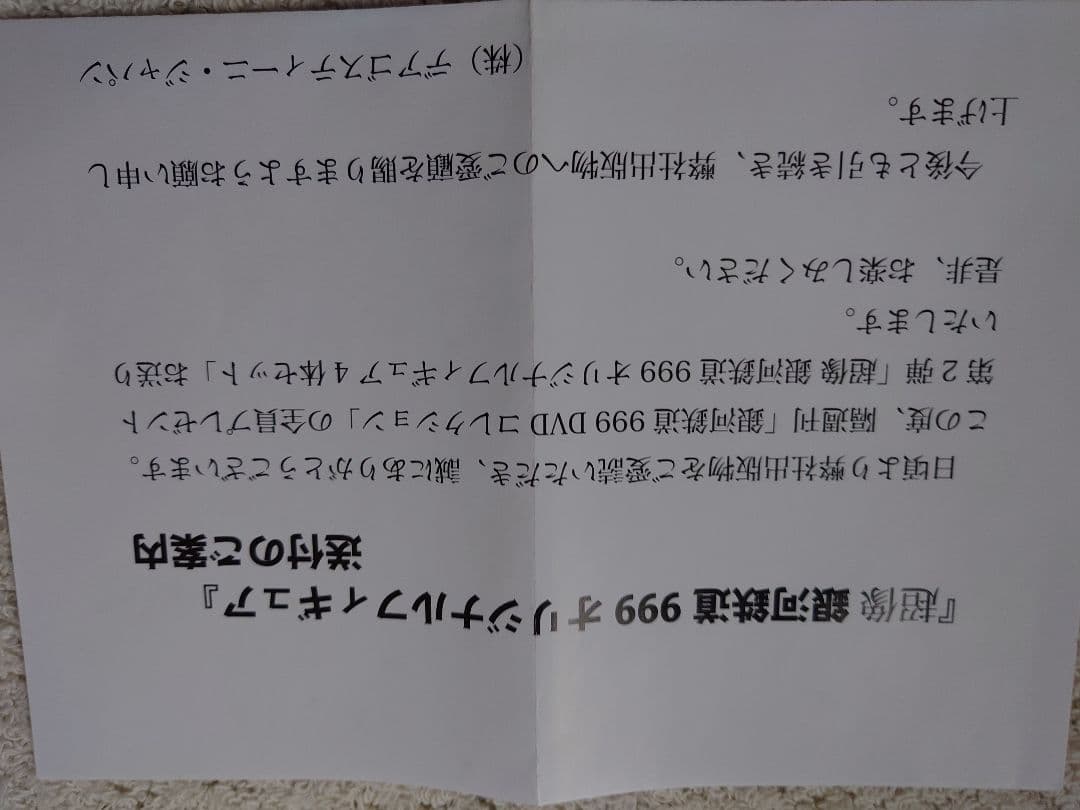 『超像 銀河鉄道 999 オリジナルフィギュア』
送付のご案内
日頃より弊社出版物をご愛読いただき、誠にありがとうございます。
この度、隔週刊「銀河鉄道 999 DVD コレクション」の全員プレゼント
第２弾「超像 銀河鉄道 999 オリジナルフィギュア 4 体セット」お送り
いたします。
是非、お楽しみください。
今後とも引き続き、弊社出版物へのご愛顧を賜りますようお願い申し
上げます。
（株）デアゴスティーニ・ジャパン